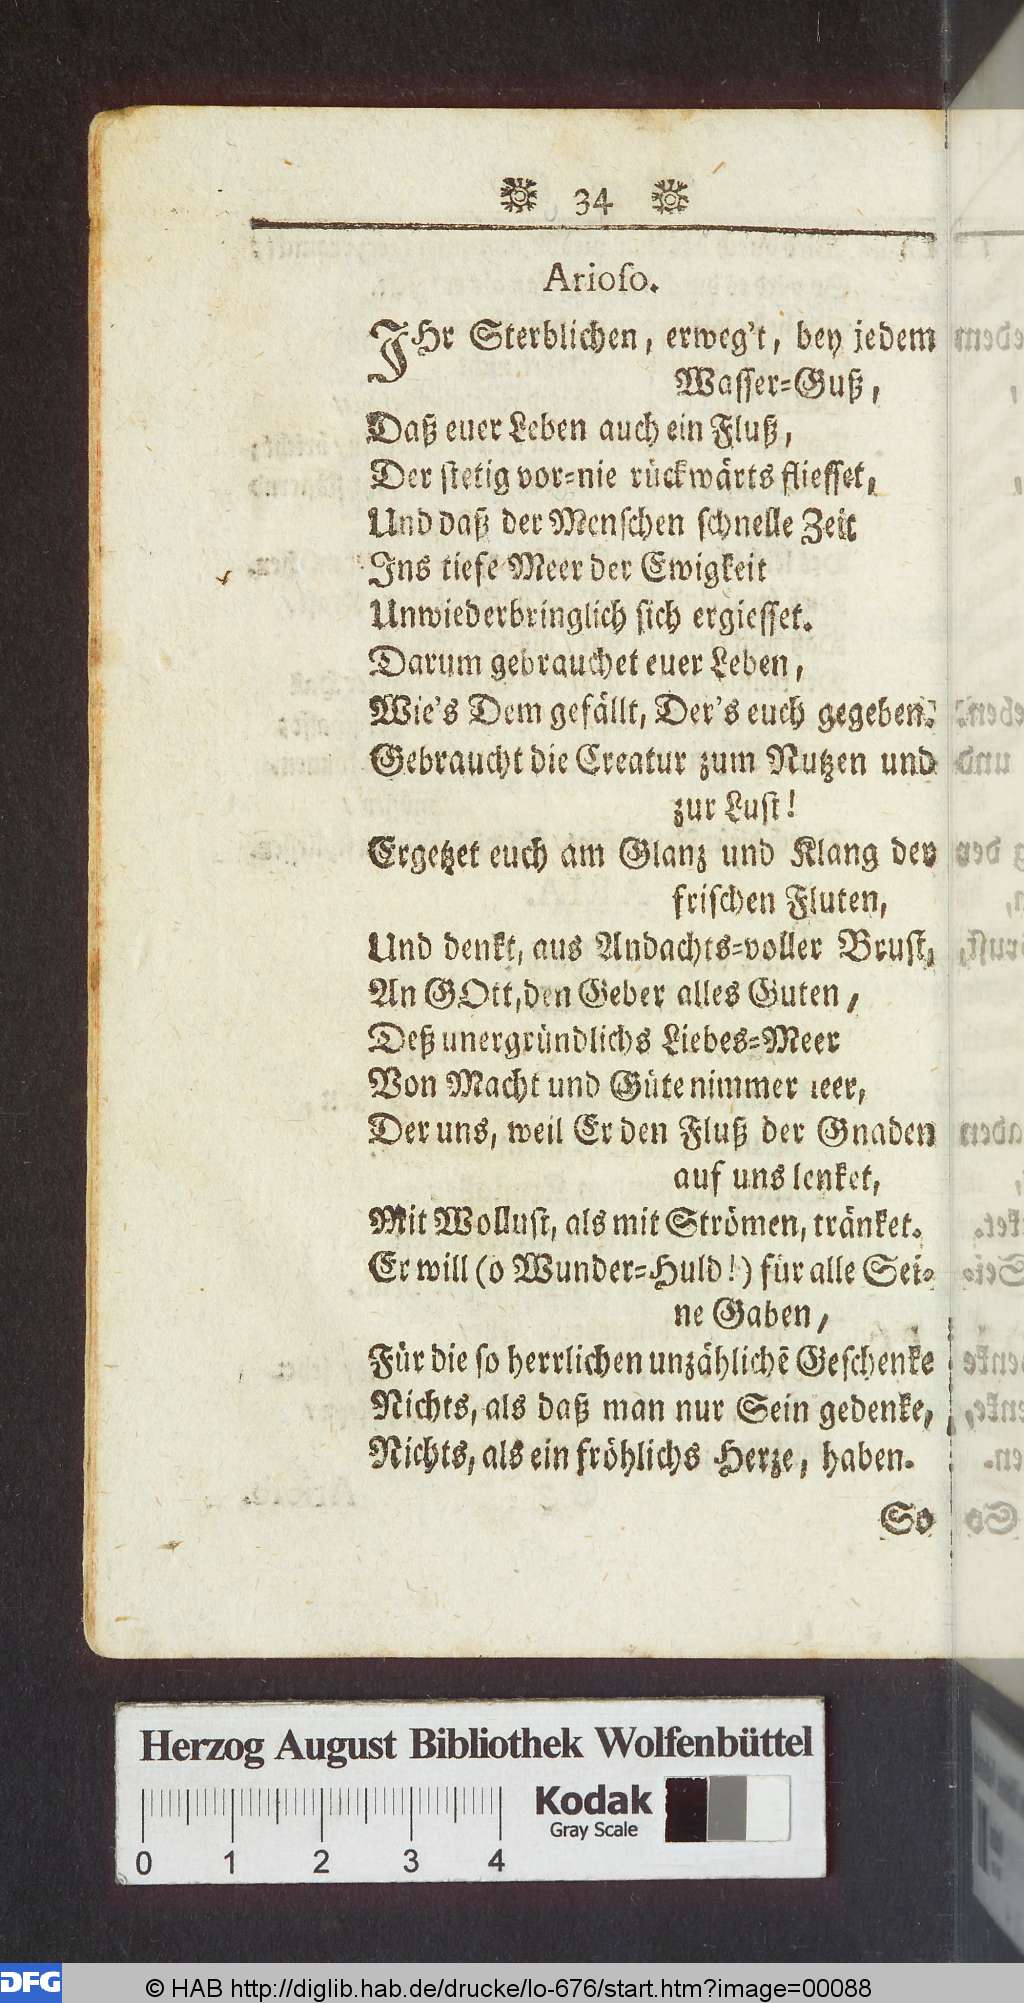 34
Arioſo.
IHr Sterblichen, erweg't, bey jedem
Waſſer-Guß,
Daß euer Leben auch ein Fluß,
Der ſtetig vor-nie rückwärts flieſſet,
Und daß der Menſchen ſchnelle Zeit
Ins tiefe Meer der Ewigkeit
Unwiederbringlich ſich ergieſſet.
Darum gebrauchet euer Leben,
Wie's Dem gefällt, Der's euch gegeben.
Gebraucht die Creatur zum Nutzen und
zur Luſt!
Ergetzet euch am Glanz und Klang der
friſchen Fluten,
Und denkt, aus Andachts-voller Bruſt,
An GOtt, den Geber alles Guten,
Deß unergründlichs Liebes-Meer
Von Macht und Güte nimmer leer,
Der uns, weil Er den Fluß der Gnaden
auf uns lenket,
Mit Wolluſt, als mit Strömen, tränket.
Er will (o Wunder-Huld!) für alle Sei-
ne Gaben,
Für die ſo herrlichen unzählichē Geſchenke
Nichts, als daß man nur Sein gedenke,
Nichts, als ein fröhlichs Herze, haben.
So
Herzog August Bibliothek Wolfenbüttel
Kodak
Gray Scale
0 1 2 3 4
DFG
© HAB http://diglib.hab.de/drucke/lo-676/start.htm?image=00088